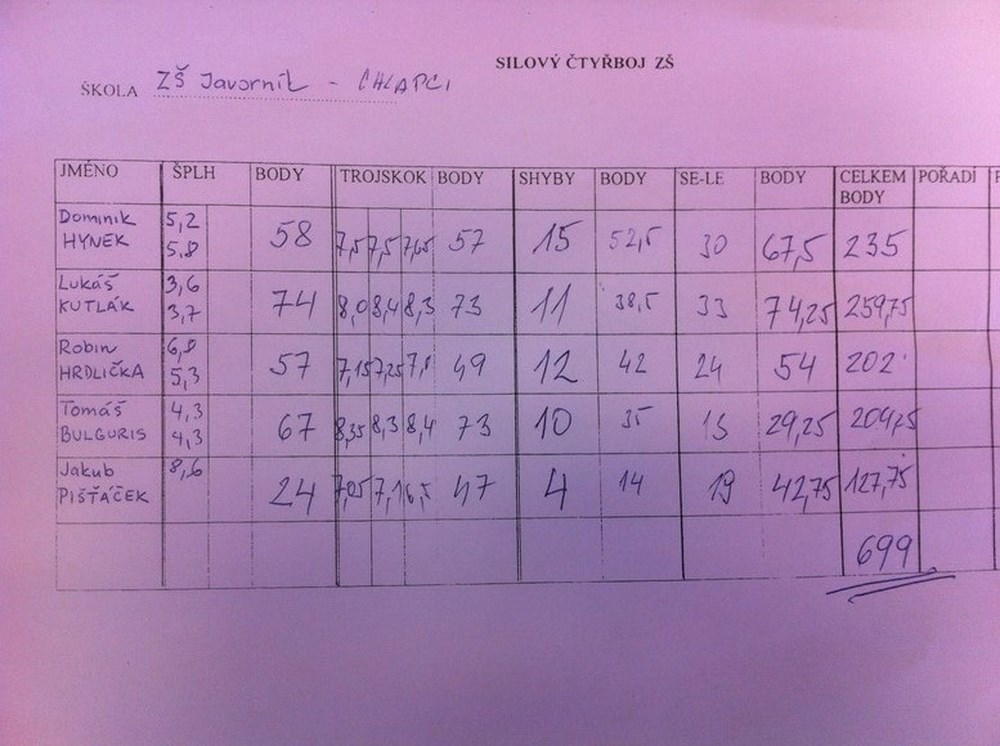 SILOVÝ ČTYŘBOJ ZŠ
ŠKOLA ZŠ Javorník - CHLAPCI
JMÉNO ŠPLH BODY TROJSKOK BODY SHYBY BODY SE-LE BODY CELKEM BODY POŘADÍ
Dominik HYNEK 5,2 5,8 58 7,5 7,5 7,65 57 15 52,5 30 67,5 235
Lukáš KUTLÁK 3,6 3,7 74 8,0 8,4 8,3 73 11 38,5 33 74,25 259,75
Robin HRDLIČKA 5,3 57 7,15 7,25 49 12 42 24 54 202
Tomáš BULGURIS 4,3 4,3 67 8,35 8,3 8,4 73 10 35 13 29,25 204,25
Jakub PIŠŤÁČEK 8,6 24 7,05 7,1 6,5 47 4 14 19 42,75 127,75
699